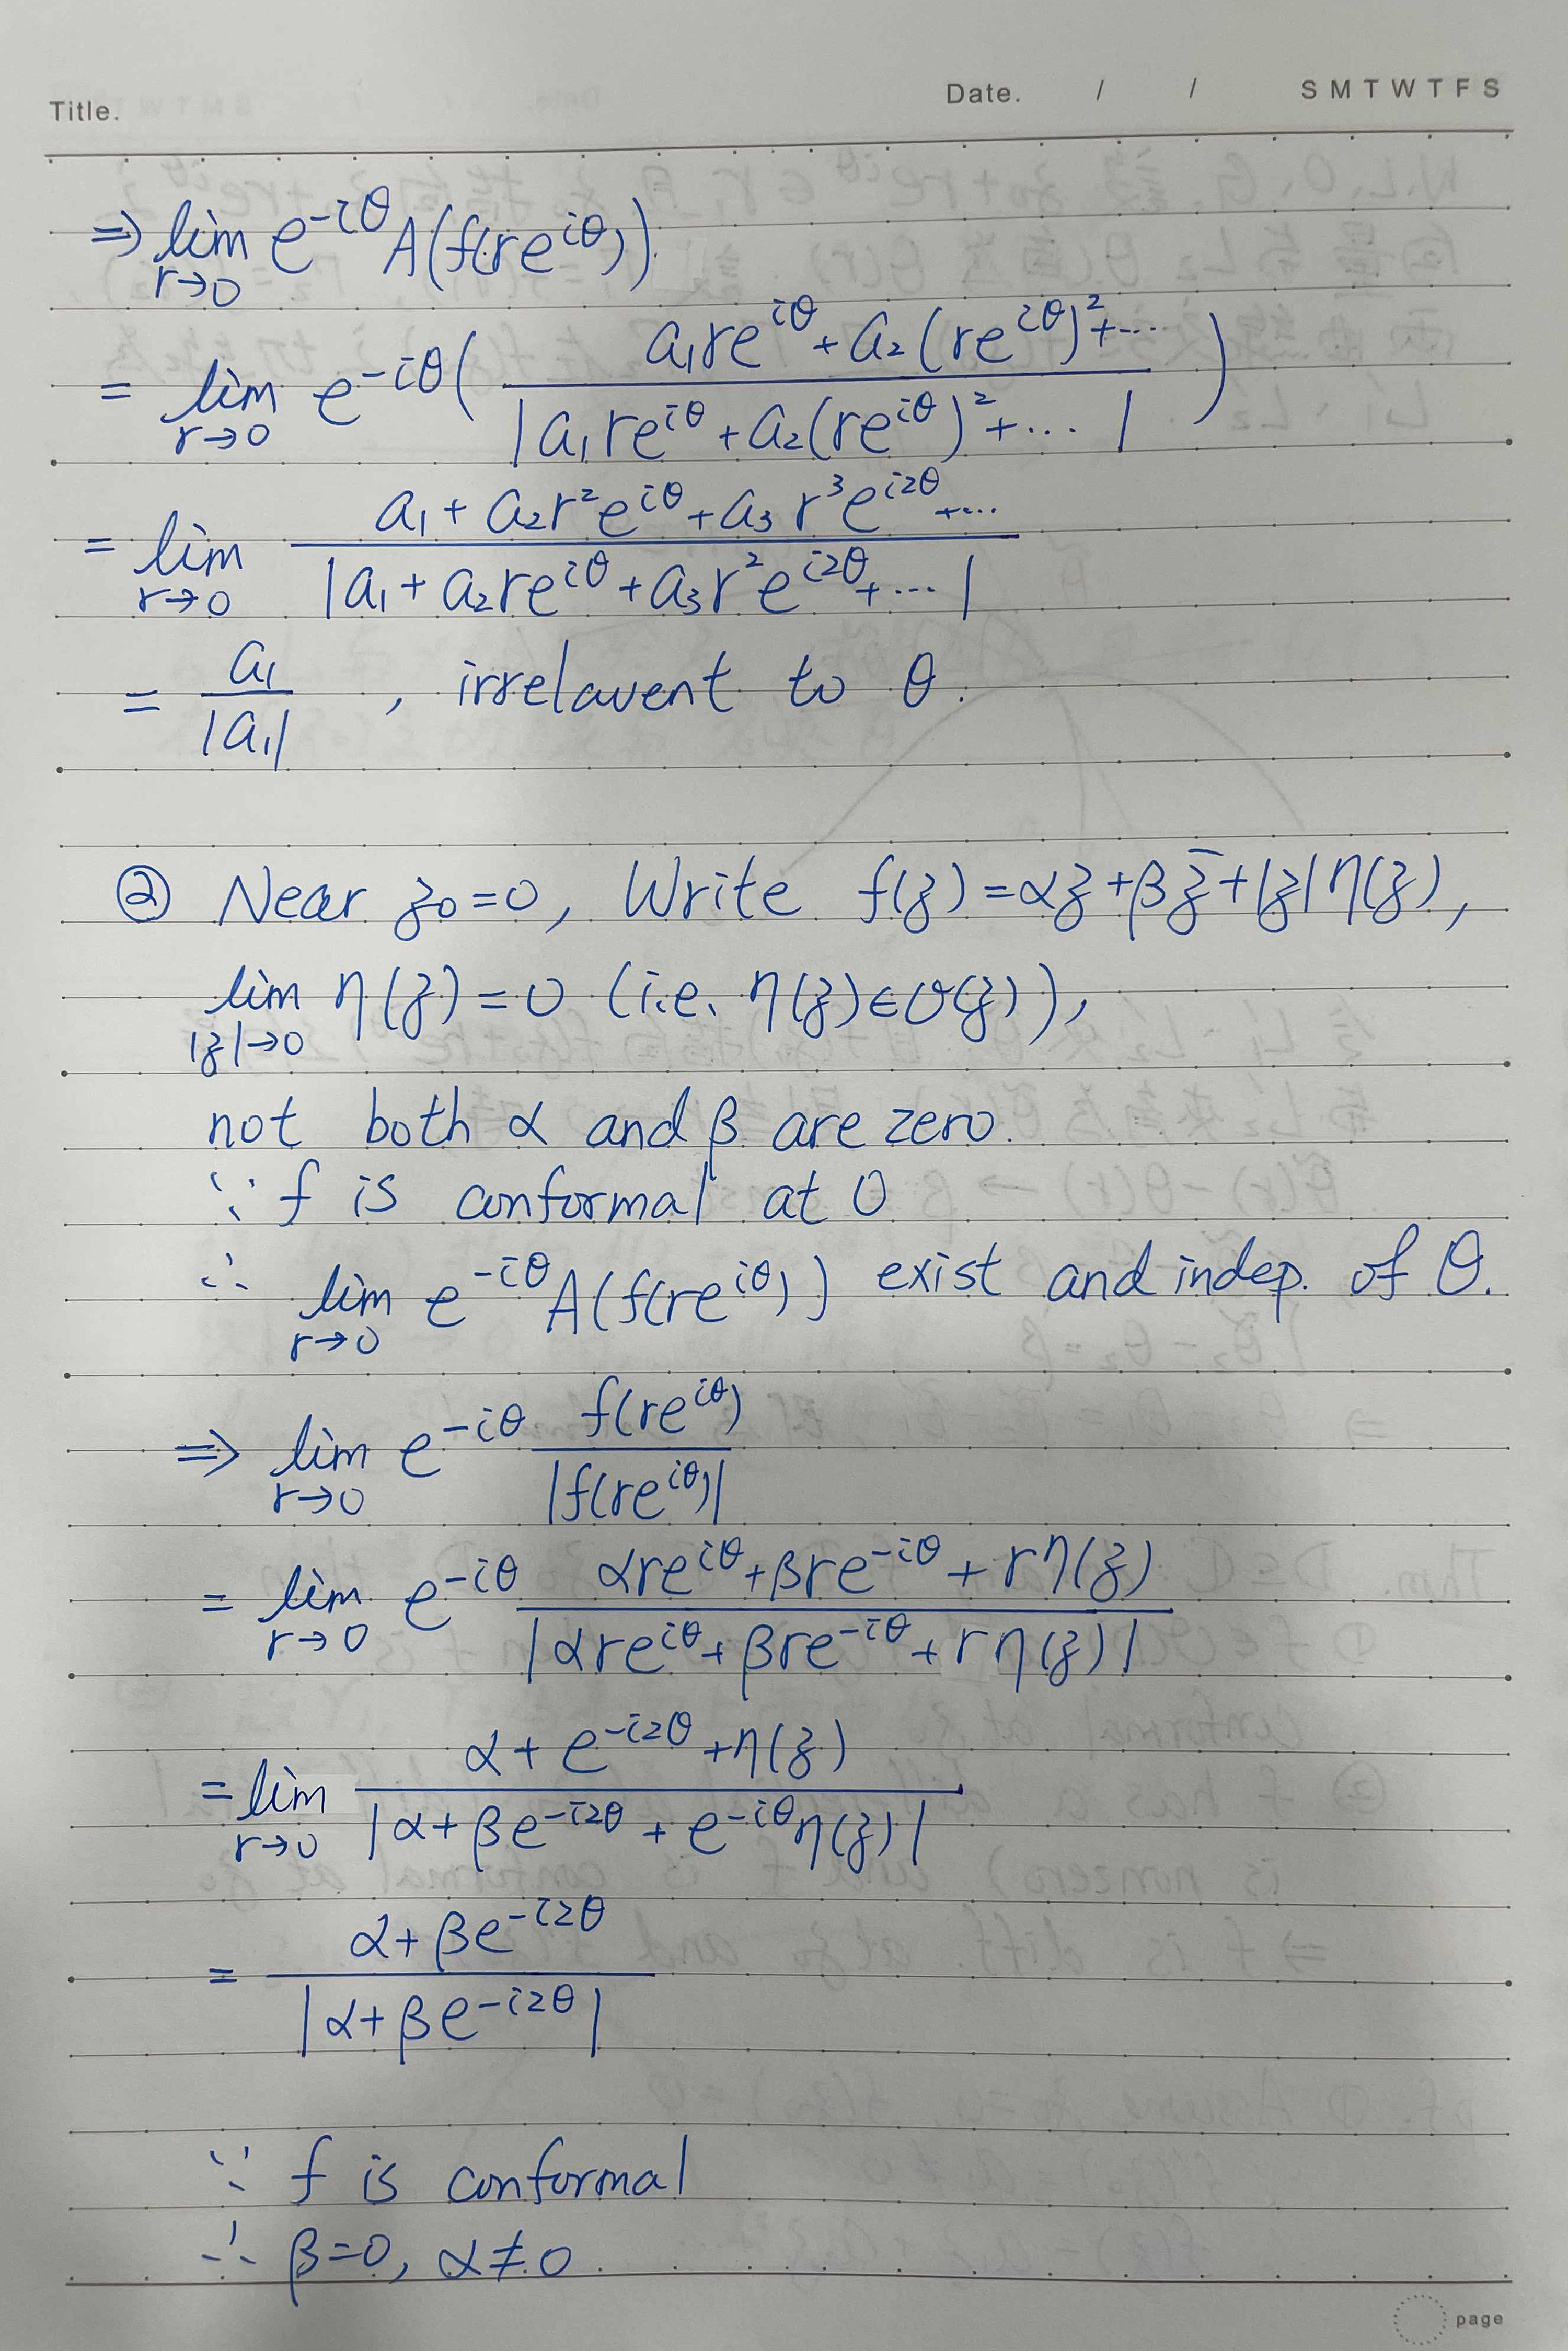 Title.
Date. / / S M T W T F S
⇒ lim_{r→0} e^{-iθ} A(f(re^{iθ}))
= lim_{r→0} e^{-iθ} ( (a₁re^{iθ} + a₂(re^{iθ})² + ⋯) / |a₁re^{iθ} + a₂(re^{iθ})² + ⋯| )
= lim_{r→0} (a₁ + a₂r²e^{iθ} + a₃r³e^{i2θ} + ⋯) / |a₁ + a₂re^{iθ} + a₃r²e^{i2θ} + ⋯|
= a₁ / |a₁| , irrelavent to θ.
② Near z₀=0, Write f(z) = αz + βz̄ + |z|η(z),
lim_{|z|→0} η(z) = 0 (i.e. η(z)∈o(z)),
not both α and β are zero.
∵ f is conformal at 0
∴ lim_{r→0} e^{-iθ} A(f(re^{iθ})) exist and indep. of θ.
⇒ lim_{r→0} e^{-iθ} f(re^{iθ}) / |f(re^{iθ})|
= lim_{r→0} e^{-iθ} (αre^{iθ} + βre^{-iθ} + rη(z)) / |αre^{iθ} + βre^{-iθ} + rη(z)|
= lim_{r→0} (α + e^{-i2θ} + η(z)) / |α + βe^{-i2θ} + e^{-iθ}η(z)|
= (α + βe^{-i2θ}) / |α + βe^{-i2θ}|
∵ f is conformal
∴ β=0, α≠0.
page